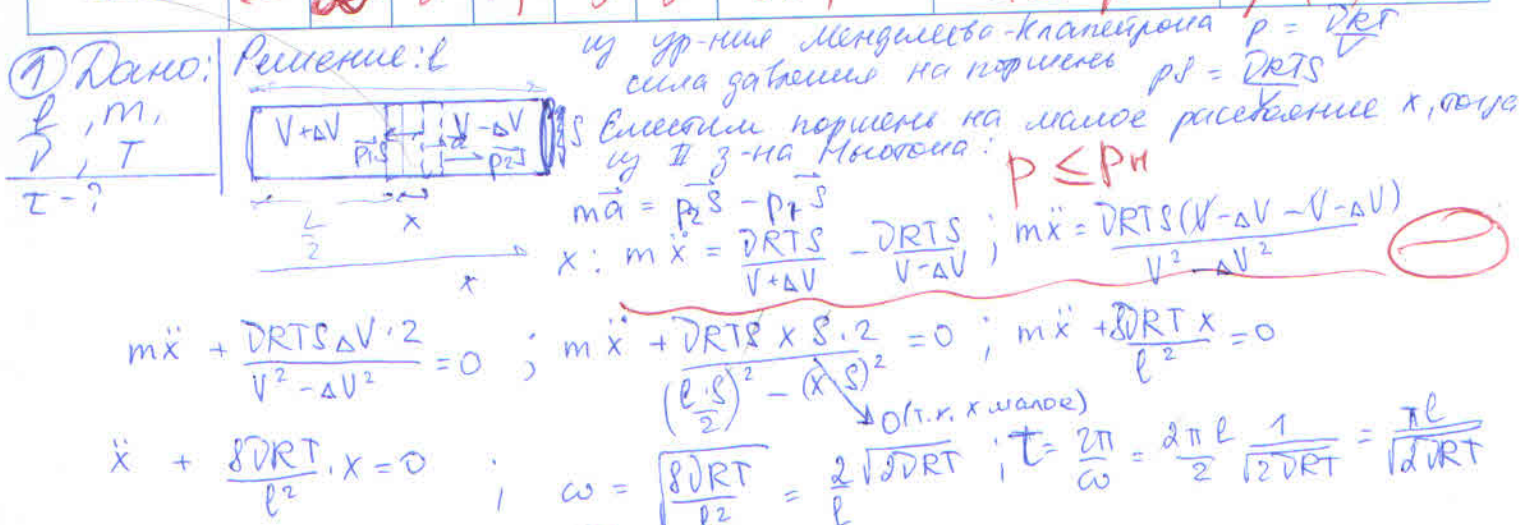 ① Дано: Решение: l из ур-ния Менделеева-Клапейрона p = νRT/V
l, m, сила давления на поршень pS = νRTS/V
ν, T V+ΔV p₁S a V-ΔV p₂S S Сместим поршень на малое расстояние x, тогда
τ-? из II з-на Ньютона: p ≤ pн
L/2 x ma = p₂S - p₁S
x x: mẍ = νRTS/(V+ΔV) - νRTS/(V-ΔV) ; mẍ = νRTS(V-ΔV-V-ΔV)/(V²-ΔV²)
mẍ + νRTSΔV·2/(V²-ΔV²) = 0 ; mẍ + νRTS x S·2/((l·S/2)² - (xS)²) = 0 ; mẍ + 8νRT x/l² = 0
0 (т.к. x малое)
ẍ + 8νRT/l² · x = 0 ; ω = √(8νRT/l²) = 2/l √(2νRT) ; τ = 2π/ω = 2πl/2 · 1/√(2νRT) = πl/√(2νRT)